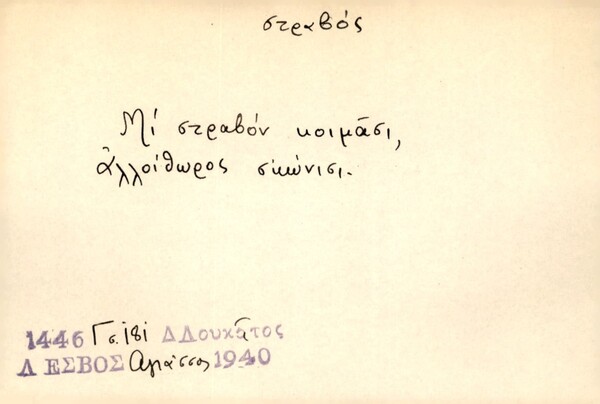 στραβός
Μί στραβόν κοιμᾶσι,
ἀλλοίθωρος σ'κώνισι.
1446 Γ σ. 181 Δ Λουκᾶτος
ΛΕΣΒΟΣ Αγιάσσος 1940